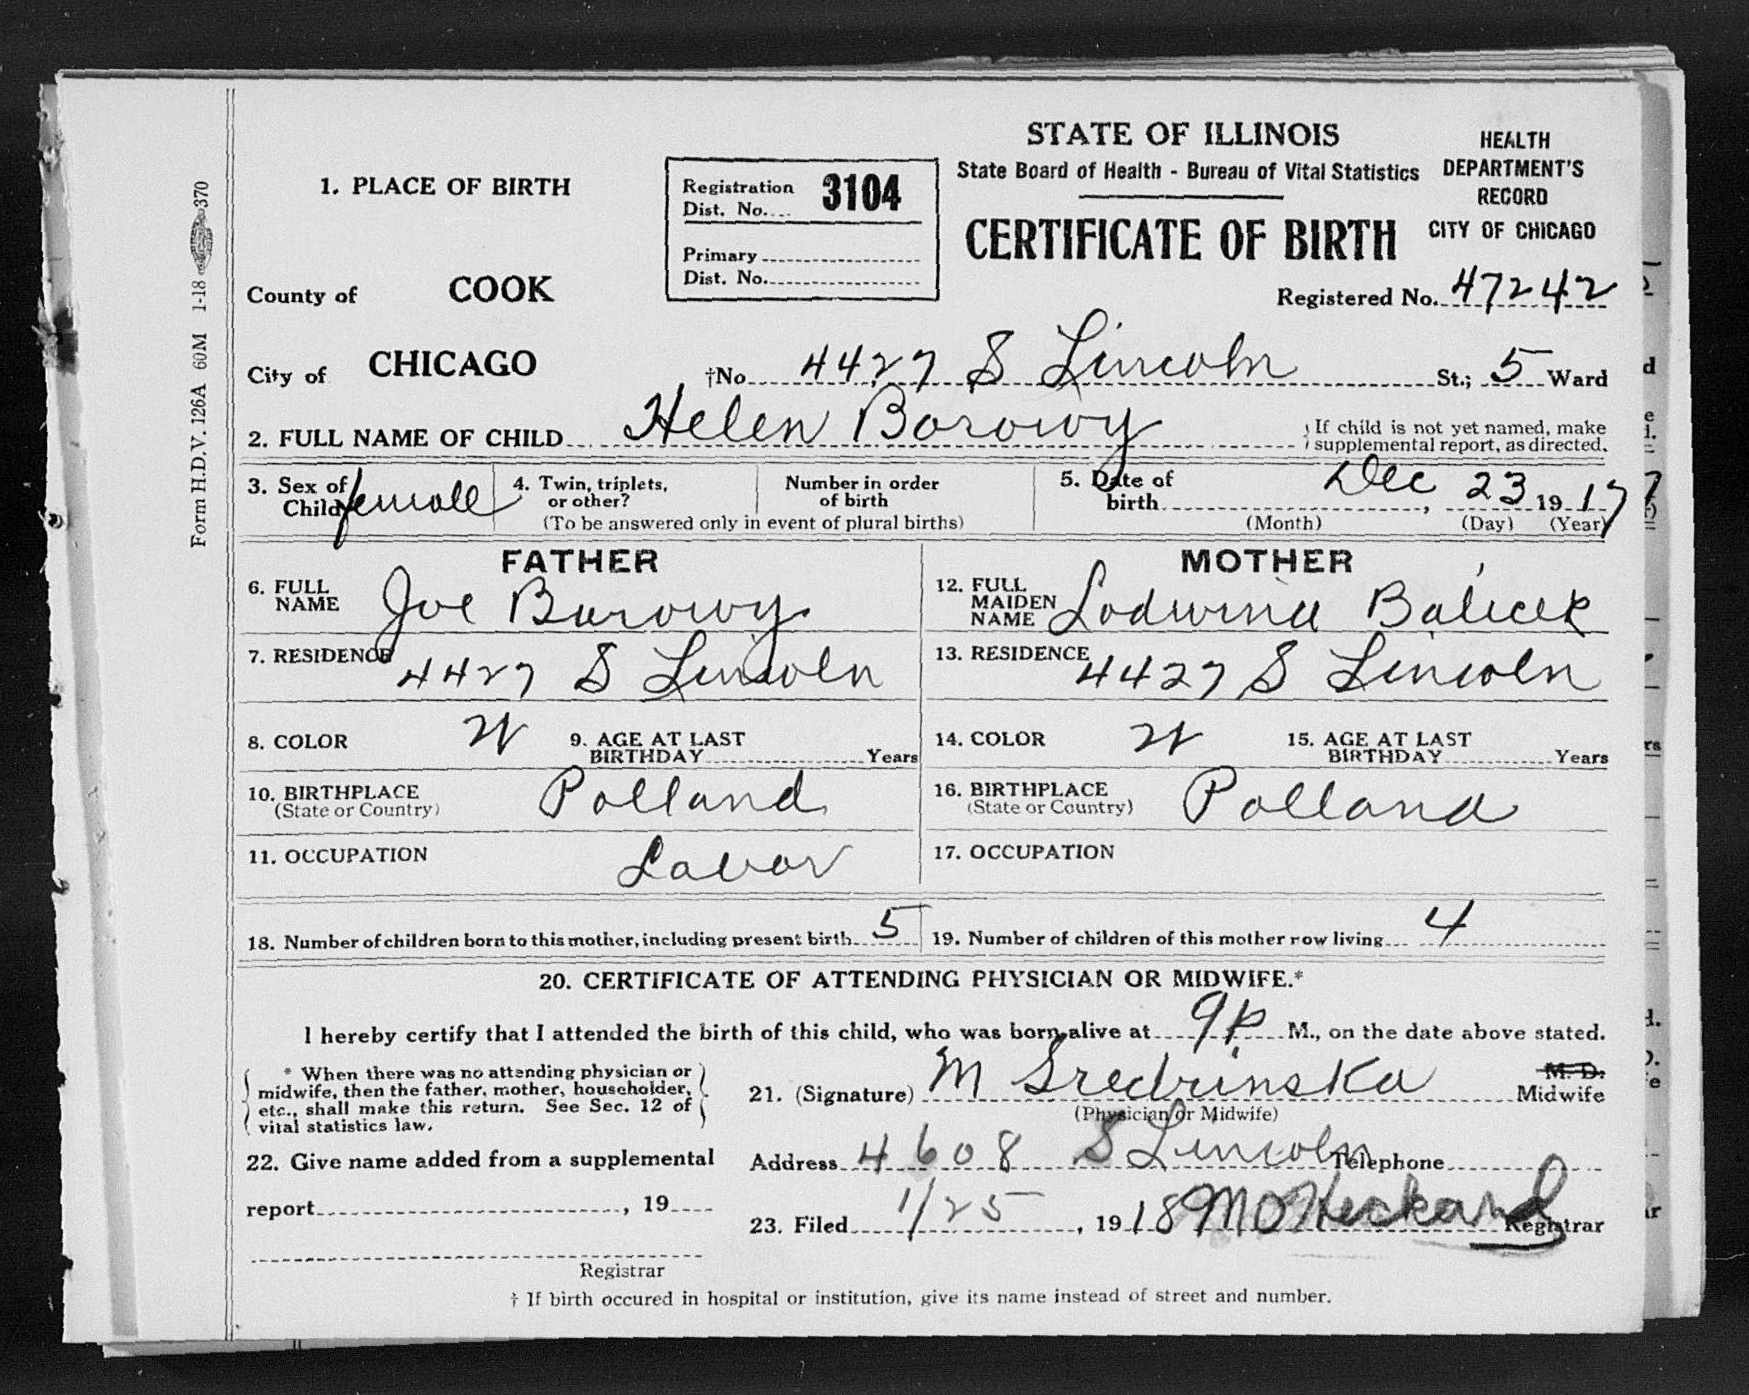 STATE OF ILLINOIS
State Board of Health - Bureau of Vital Statistics
HEALTH
DEPARTMENT'S
RECORD
CITY OF CHICAGO
CERTIFICATE OF BIRTH
1. PLACE OF BIRTH
Registration
Dist. No.... 3104
Primary
Dist. No.
County of COOK
Registered No. 47242
City of CHICAGO †No. 4427 S Lincoln St.; 5 Ward
2. FULL NAME OF CHILD Helen Borowy { If child is not yet named, make
supplemental report, as directed.
3. Sex of
Child female
4. Twin, triplets,
or other?
Number in order
of birth
(To be answered only in event of plural births)
5. Date of
birth Dec 23, 1917
(Month) (Day) (Year)
FATHER
6. FULL
NAME Joe Borowy
7. RESIDENCE 4427 S Lincoln
8. COLOR W 9. AGE AT LAST
BIRTHDAY Years
10. BIRTHPLACE
(State or Country) Polland
11. OCCUPATION Labor
MOTHER
12. FULL
MAIDEN
NAME Lodwina Balicek
13. RESIDENCE 4427 S Lincoln
14. COLOR W 15. AGE AT LAST
BIRTHDAY Years
16. BIRTHPLACE
(State or Country) Polland
17. OCCUPATION
18. Number of children born to this mother, including present birth 5
19. Number of children of this mother now living 4
20. CERTIFICATE OF ATTENDING PHYSICIAN OR MIDWIFE.*
I hereby certify that I attended the birth of this child, who was born alive at 9 p M., on the date above stated.
* When there was no attending physician or
midwife, then the father, mother, householder,
etc., shall make this return. See Sec. 12 of
vital statistics law.
21. (Signature) M Sredzinska M. D.
Midwife
(Physician or Midwife)
22. Give name added from a supplemental
report , 19
Registrar
Address 4608 S Lincoln Telephone
23. Filed 1/25, 1918 Registrar
† If birth occured in hospital or institution, give its name instead of street and number.
Form H.D.V. 126A 60M 1-18 370